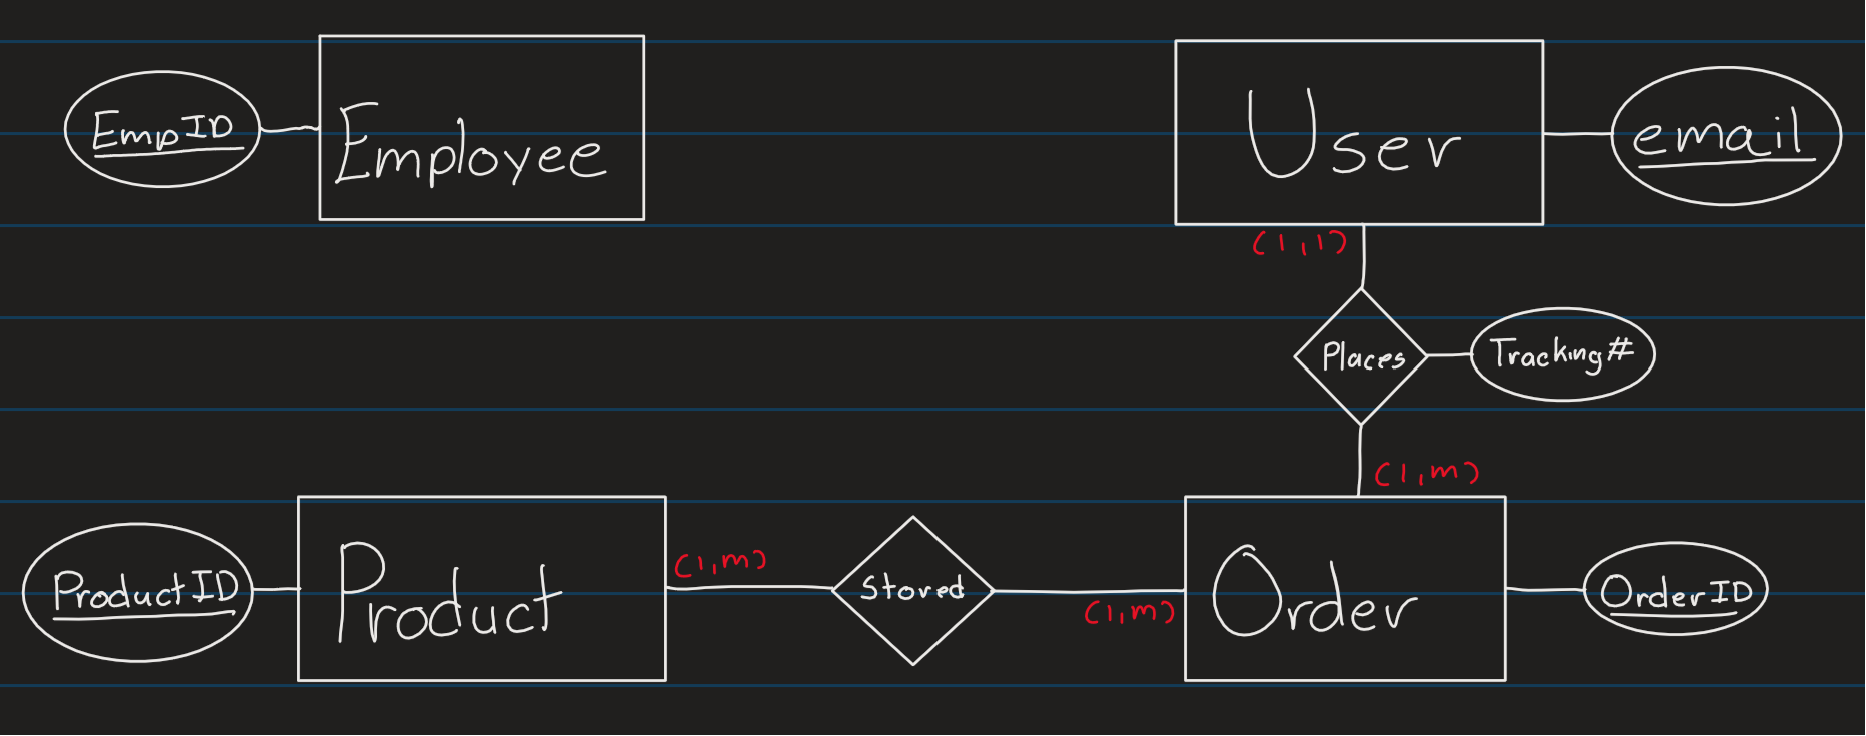 EmpID
Employee
User
email
(1,1)
Places
Tracking#
(1,m)
ProductID
Product
(1,m)
Stored
(1,m)
Order
OrderID